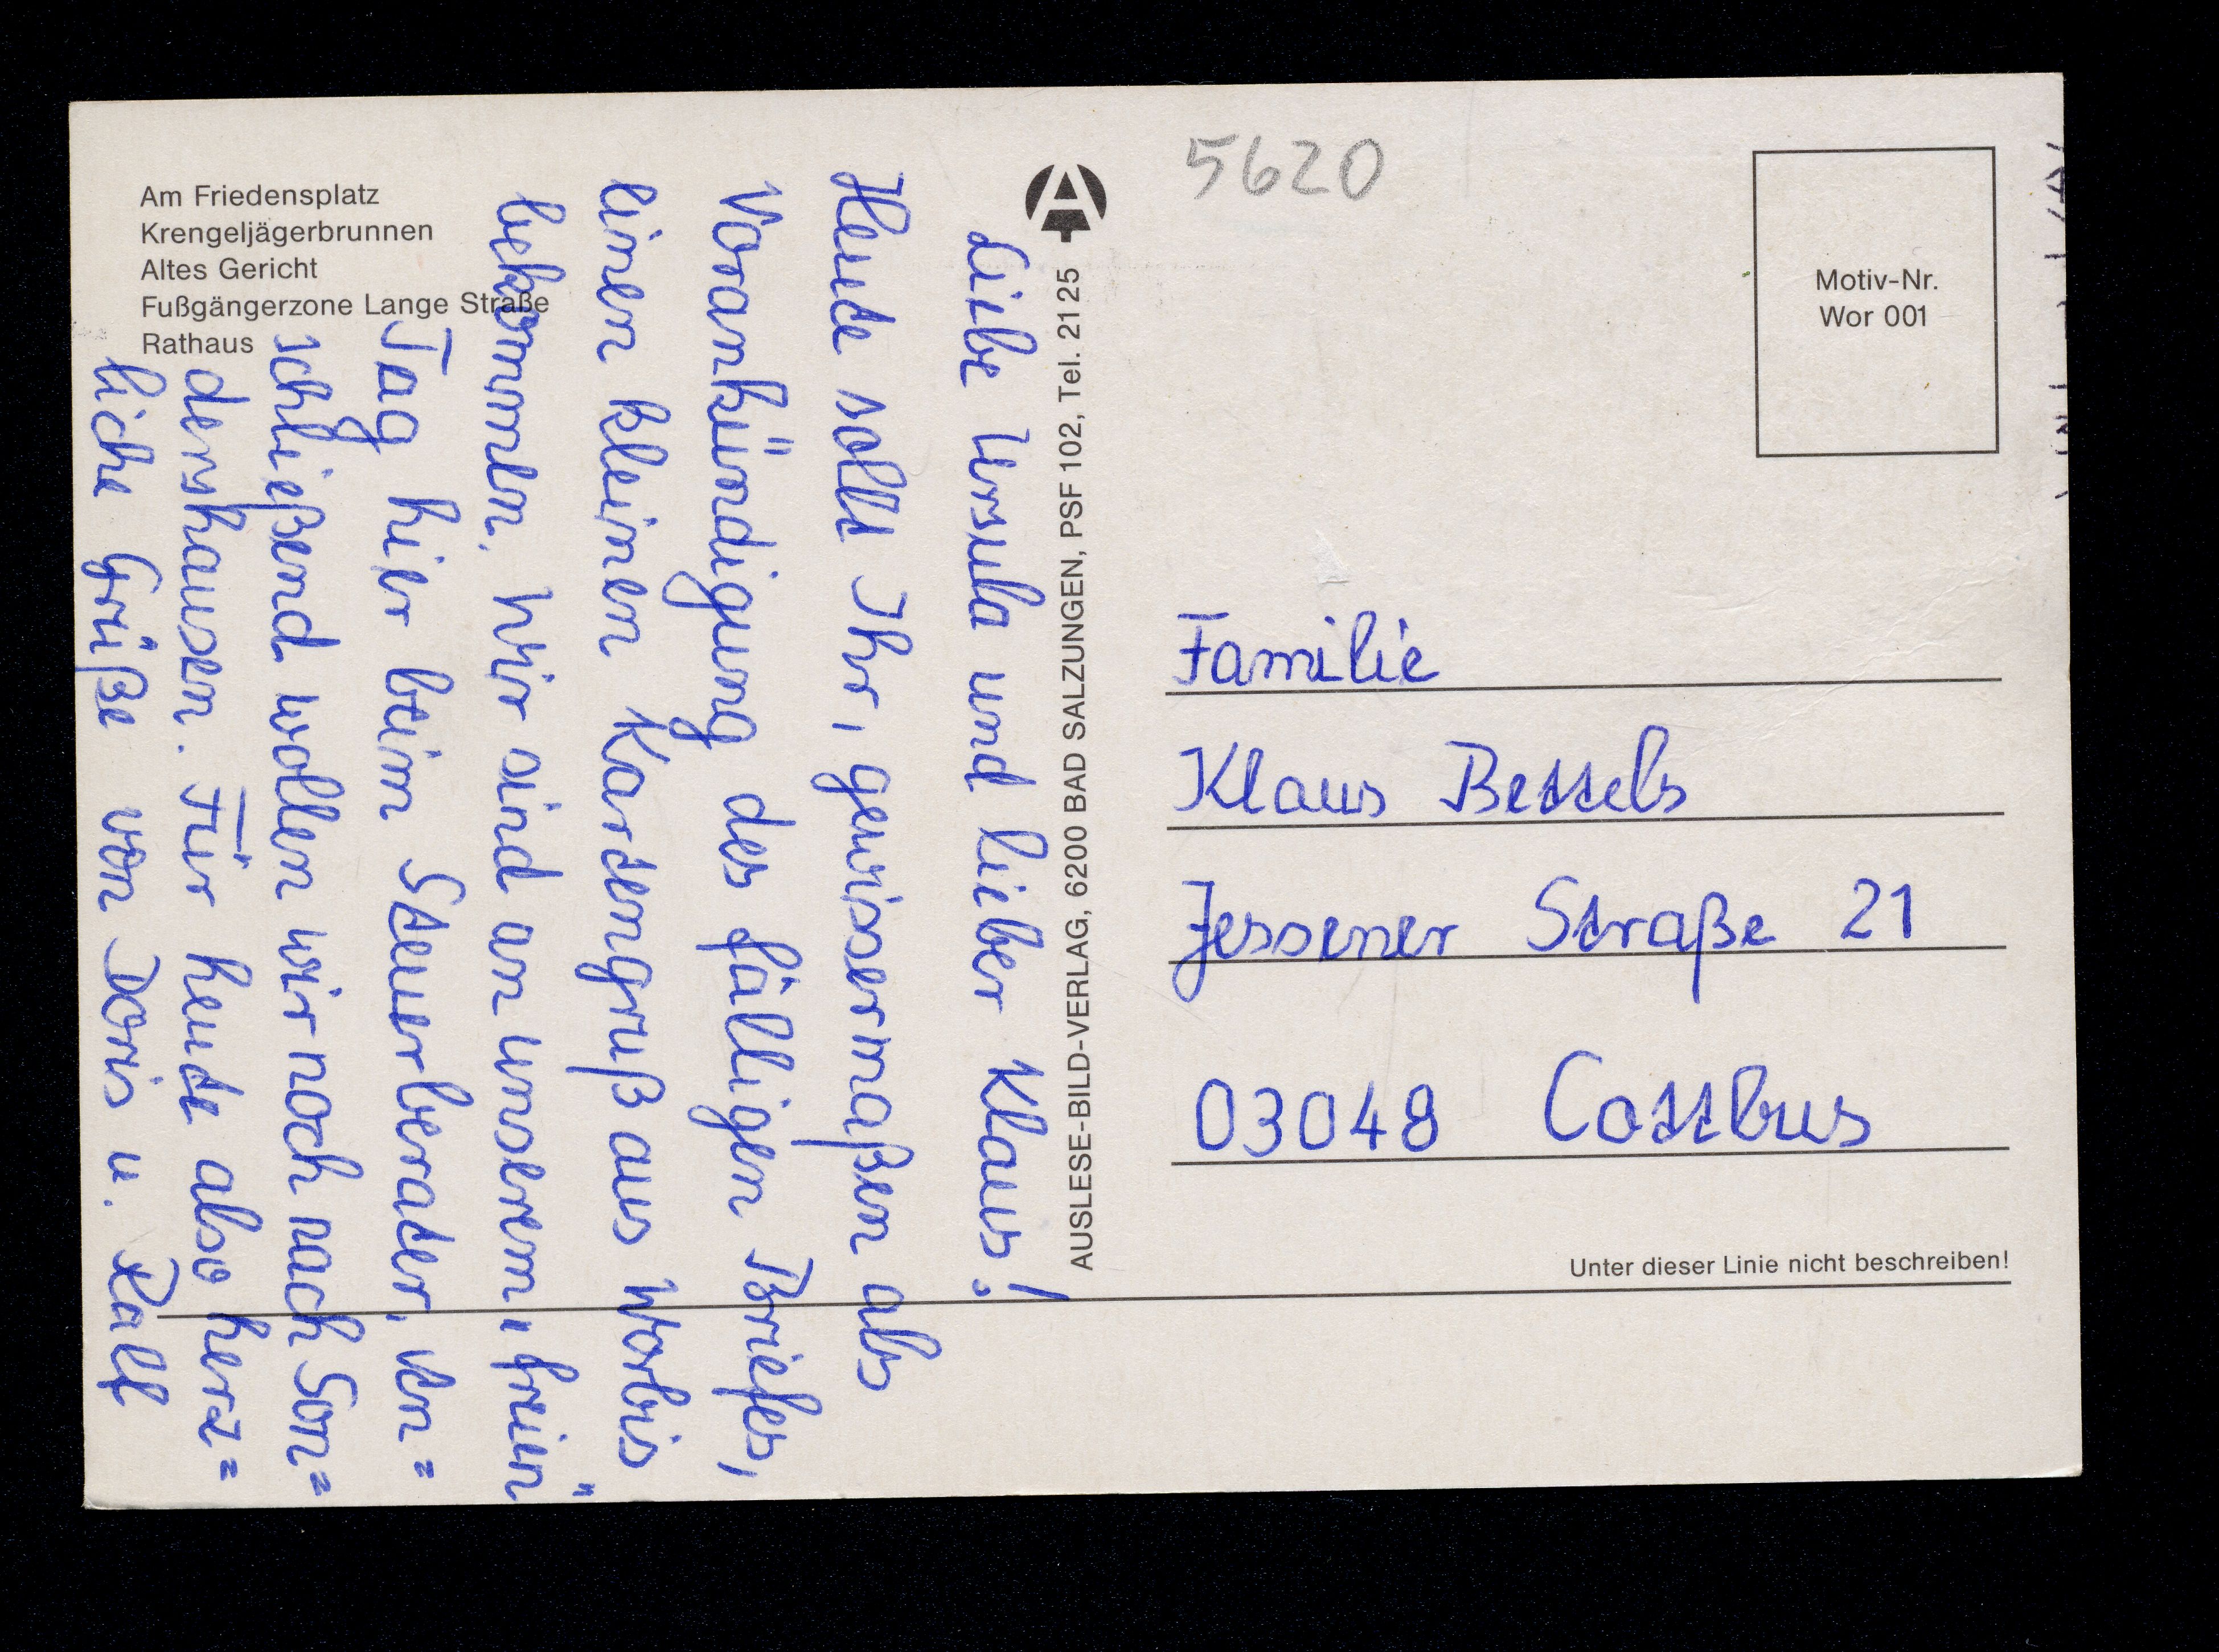 Am Friedensplatz
Krengeljägerbrunnen
Altes Gericht
Fußgängerzone Lange Straße
Rathaus
Liebe Ursula und lieber Klaus!
Heute sollt Ihr, gewissermaßen als
Vorankündigung des fälligen Briefes,
einen kleinen Kartengruß aus Worbis
bekommen. Wir sind an unserem „freien"
Tag hier beim Steuerberater, an=
schließend wollen wir noch nach Son=
dershausen. Für heute also herz=
liche Grüße von Doris u. Ralf
AUSLESE-BILD-VERLAG, 6200 BAD SALZUNGEN, PSF 102, Tel. 21 25
5620
Motiv-Nr.
Wor 001
Familie
Klaus Bettels
Jessener Straße 21
03048 Cottbus
Unter dieser Linie nicht beschreiben!